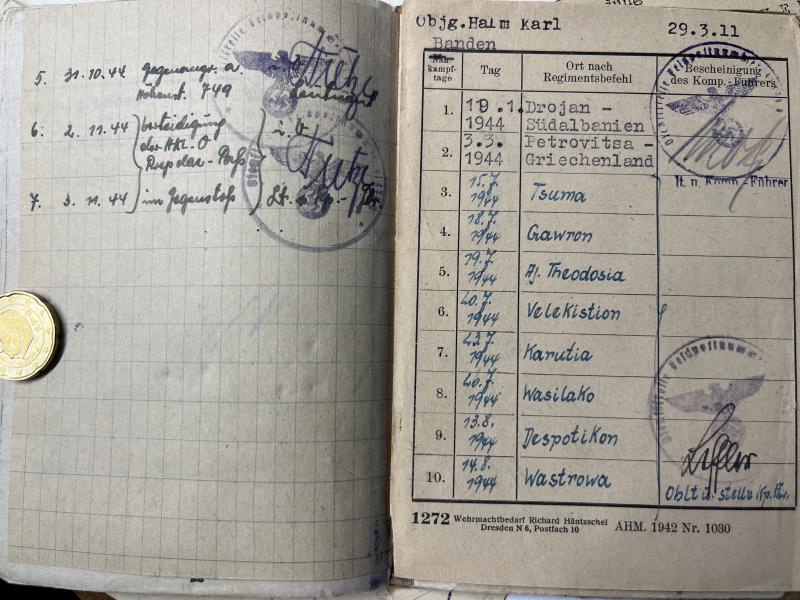 5. 31.10.44 Gegenangr. a.
Höhenst. 749 Leutnant
6. 2.11.44 Verteidigung
der HKL O
7. 3.11.44 im Gegenstoß Lt. u. Kp.-
Objg. Halm Karl 29.3.11
Banden
Nah-
kampf-
tage
Tag
Ort nach
Regimentsbefehl
Bescheinigung
des Komp.-Führers
1. 19.1. Drojan -
1944 Südalbanien
2. 3.3. Petrovitsa -
1944 Griechenland
lt. u. Komp.-Führer
3. 15.7. 1944 Tsuma
4. 18.7. 1944 Gawron
5. 19.7. 1944 Aj. Theodosia
6. 20.7. 1944 Velekistion
7. 23.7. 1944 Karutia
8. 26.7. 1944 Wasilako
9. 13.8. 1944 Despotikon
10. 14.8. 1944 Wastrowa
Oblt u. stellv. Kp. Fhr.
1272 Wehrmachtbedarf Richard Häntzschel
Dresden N 6, Postfach 10
AHM. 1942 Nr. 1030